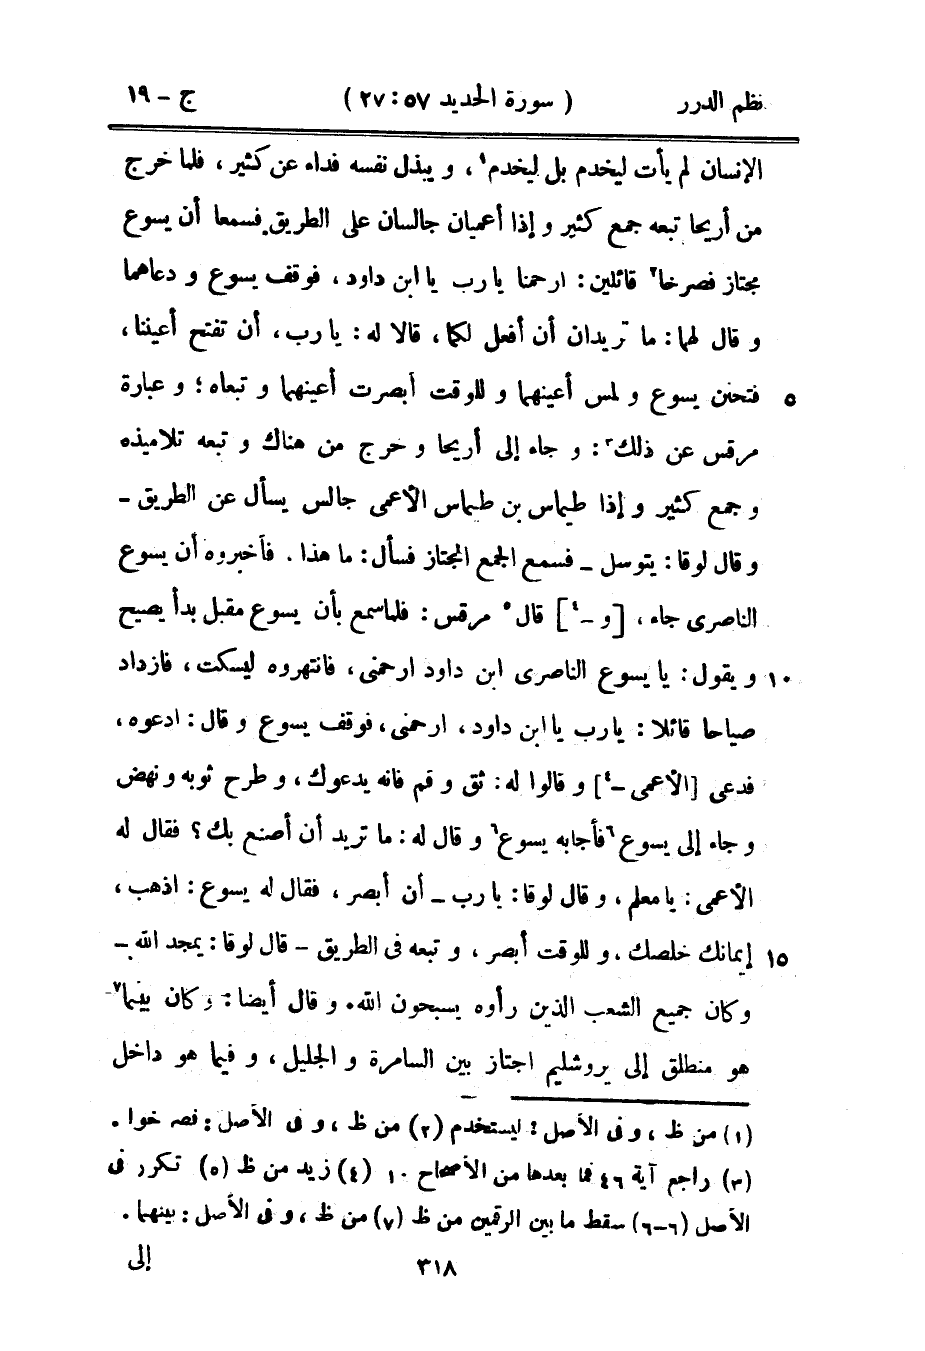 نظم الدرر ( سورة الحديد ٥٧ : ٢٧ ) ج – ١٩
الإنسان لم يأت ليخدم بل ليخدم١ ، و يبذل نفسه فداء عن كثير ، فلما خرج
من أريحا تبعه جمع كثير و إذا أعميان جالسان على الطريق فسمعا أن يسوع
مجتاز فصرخا٢ قائلين : ارحمنا يا رب يا ابن داود ، فوقف يسوع و دعاهما
و قال لهما : ما تريدان أن أفعل لكما ، قالا له : يا رب ، أن تفتح أعيننا ،
٥ فتحنن يسوع و لمس أعينهما و للوقت أبصرت أعينهما و تبعاه ؛ و عبارة
مرقس عن ذلك٣ : و جاء إلى أريحا و خرج من هناك و تبعه تلاميذه
و جمع كثير و إذا طيماس بن طيماس الأعمى جالس يسأل عن الطريق –
و قال لوقا : يتوسل – فسمع الجمع المجتاز فسأل : ما هذا . فأخبروه أن يسوع
الناصرى جاء ، [ و – ٤ ] قال ٥ مرقس : فلما سمع بأن يسوع مقبل بدأ يصيح
١٠ و يقول : يا يسوع الناصرى ابن داود ارحمنى ، فانتهروه ليسكت ، فازداد
صياحا قائلا : يا رب يا ابن داود ، ارحمنى ، فوقف يسوع و قال : ادعوه ،
فدعى [ الأعمى – ٤ ] و قالوا له : ثق و قم فانه يدعوك ، و طرح ثوبه و نهض
و جاء إلى يسوع ٦فأجابه يسوع٦ و قال له : ما تريد أن أصنع بك ؟ فقال له
الأعمى : يا معلم ، و قال لوقا : يا رب – أن أبصر ، فقال له يسوع : اذهب ،
١٥ إيمانك خلصك ، و للوقت أبصر ، و تبعه فى الطريق – قال لوقا : يمجد الله –
وكان جميع الشعب الذين رأوه يسبحون الله . و قال أيضا : وكان بينما٧
هو منطلق إلى يروشليم اجتاز بين السامرة و الجليل ، و فيما هو داخل
(١) من ظ ، و فى الأصل : ليستخدم (٢) من ظ ، و فى الأصل : فصرخوا .
(٣) راجع آية ٤٦ فما بعدها من الأصحاح ١٠ (٤) زيد من ظ (٥) تكرر فى
الأصل (٦–٦) سقط ما بين الرقمين من ظ (٧) من ظ ، و فى الأصل : بينهما .
٣١٨ إلى